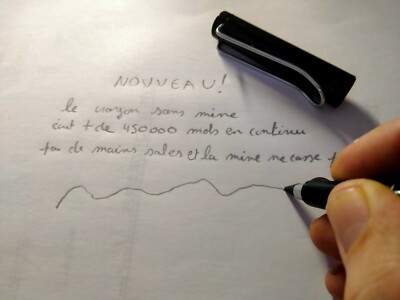 NOUVEAU!
le crayon sans mine
écrit + de 450000 mots en continu
pas de mains sales et la mine ne casse